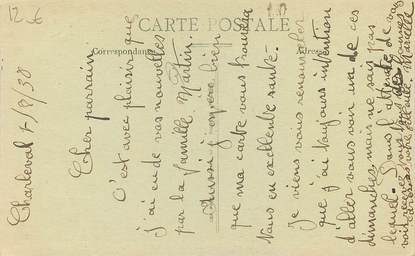 CARTE POSTALE
Correspondance
Adresse
Charleval 7/9/38
Cher parrain
C'est avec plaisir que
j'ai eu de vos nouvelles
par la famille Martin
Aussi j' bien
que ma carte vous trouvera
tous en excellente santé.
Je viens vous renouveler
que j'ai toujours intention
d'aller vous voir un de ces
dimanches mais ne sais pas
lequel. Dans l'attente de vous
voir recevez